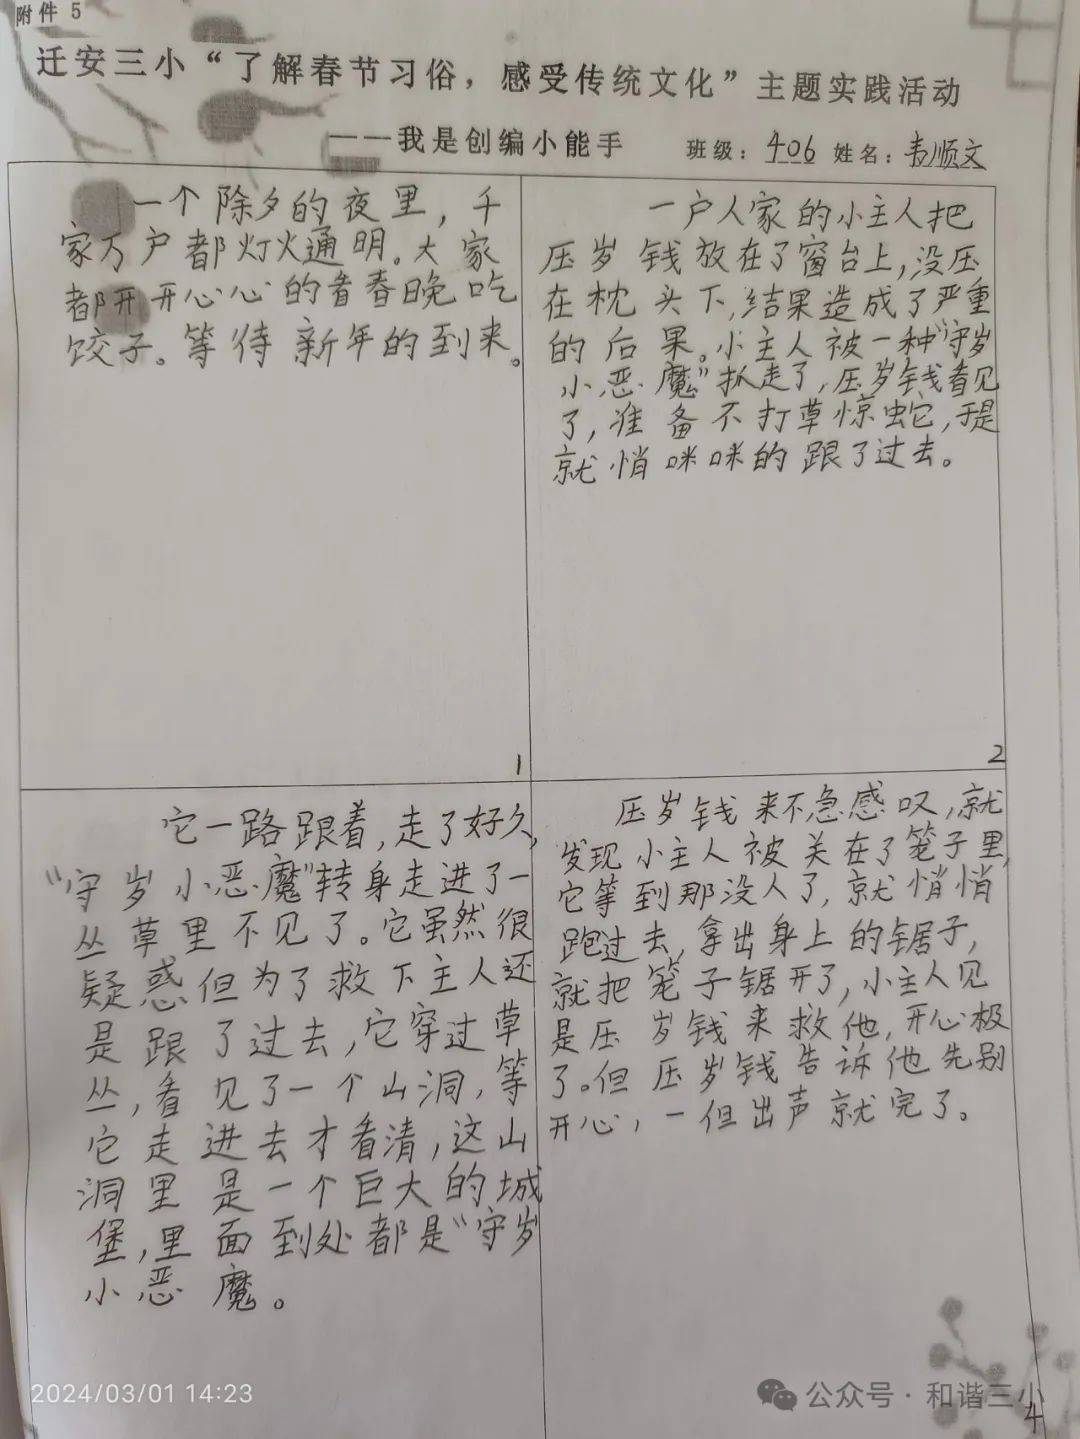 附件 5
迁安三小“了解春节习俗，感受传统文化”主题实践活动
——我是创编小能手 班级：406 姓名：韦顺文
一个除夕的夜里，千
家万户都灯火通明。大家
都开开心心的看春晚吃
饺子。等待新年的到来。
1
一户人家的小主人把
压岁钱放在了窗台上，没压
在枕头下，结果造成了严重
的后果。小主人被一种“守岁
小恶魔”抓走了，压岁钱看见
了，准备不打草惊蛇，于是
就悄咪咪的跟了过去。
2
它一路跟着，走了好久，
“守岁小恶魔”转身走进了一
丛草里不见了。它虽然很
疑惑但为了救下主人还
是跟了过去，它穿过草
丛，看见了一个山洞，等
它走进去才看清，这山
洞里是一个巨大的城
堡，里面到处都是“守岁
小恶魔。
压岁钱来不急感叹，就
发现小主人被关在了笼子里，
它等到那没人了，就悄悄
跑过去，拿出身上的锯子，
就把笼子锯开了，小主人见
是压岁钱来救他，开心极
了。但压岁钱告诉他先别
开心，一但出声就完了。
4
2024/03/01 14:23
公众号·和谐三小